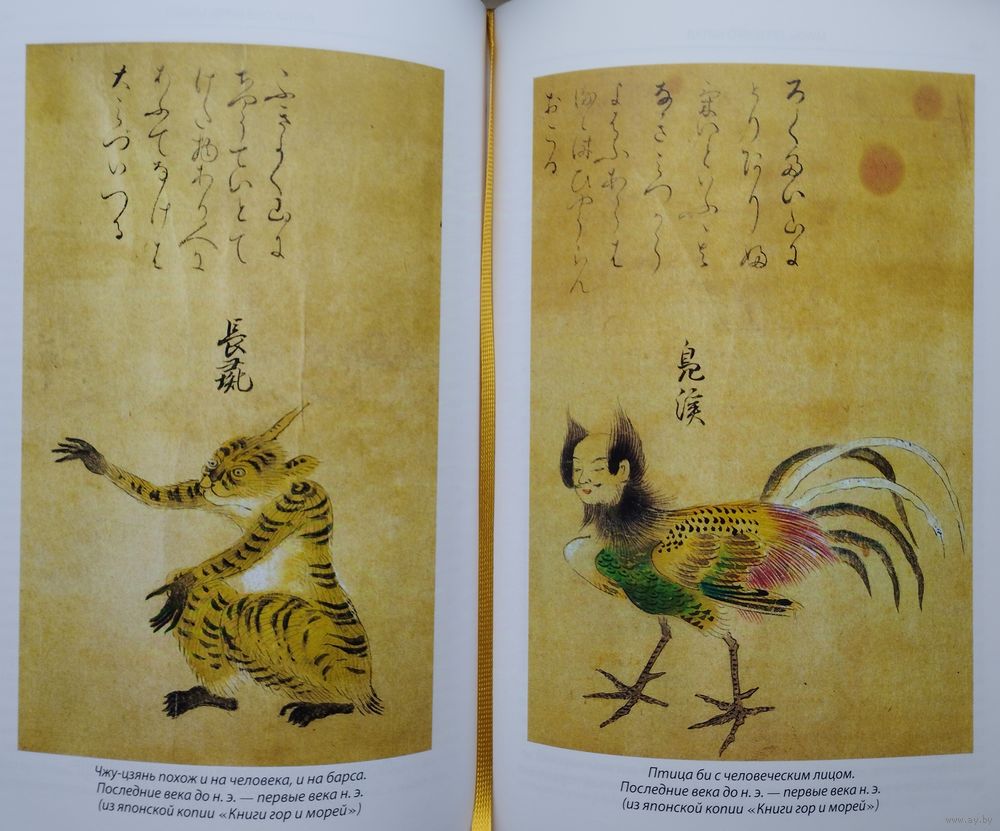 ふきよく山に
ちやうていとて
けた物あり人に
あふてなけは
大ミづいつる
長
Чжу-цзянь похож и на человека, и на барса.
Последние века до н. э. — первые века н. э.
(из японской копии «Книги гор и морей»)
ろくたい山に
とりあり
といふ
なきミつから
よはふあらは
ひやうらん
おこる
鳧徯
Птица би с человеческим лицом.
Последние века до н. э. — первые века н. э.
(из японской копии «Книги гор и морей»)
www.ay.by